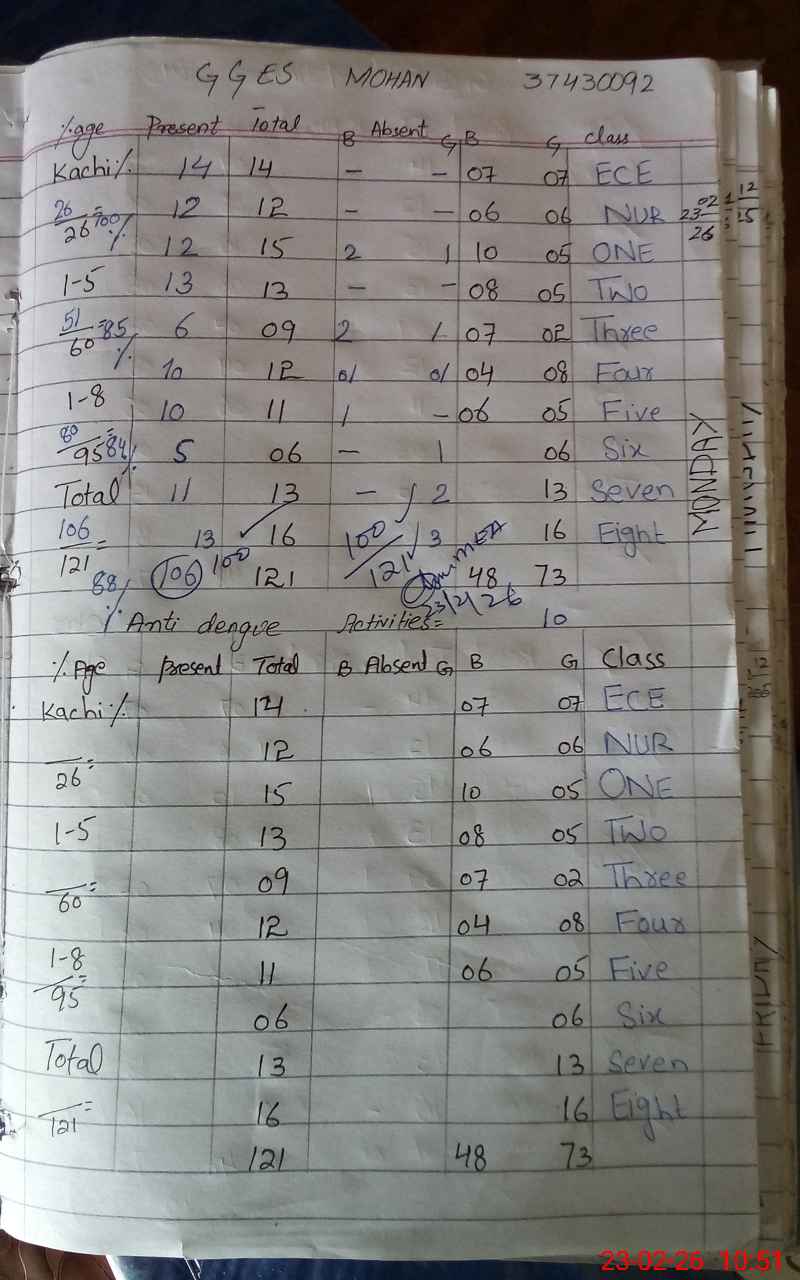 GGES MOHAN 37430092
%age Present Total B Absent G B G Class
Kachi% 14 14 - - 07 07 ECE
26/26=100% 12 12 - - 06 06 NUR
12 15 2 1 10 05 ONE
1-5 13 13 - - 08 05 Two
51/60=85% 6 09 2 1 07 02 Three
10 12 01 01 04 08 Four
1-8 10 11 1 - 06 05 Five
80/95=84% 5 06 - 1 06 Six
Total 11 13 - 2 13 Seven
106/121= 13 16 3 16 Eight
88% 106 100 121 100/121 48 73
MEA
23/2/26
Anti dengue Activities= 10
23-02-26
MONDAY
%Age Present Total B Absent G B G Class
Kachi% 14 07 07 ECE
/26= 12 06 06 NUR
15 10 05 ONE
1-5 13 08 05 Two
/60= 09 07 02 Three
12 04 08 Four
1-8 11 06 05 Five
/95= 06 06 Six
Total 13 13 Seven
/121= 16 16 Eight
121 48 73
23-02-26 10:51